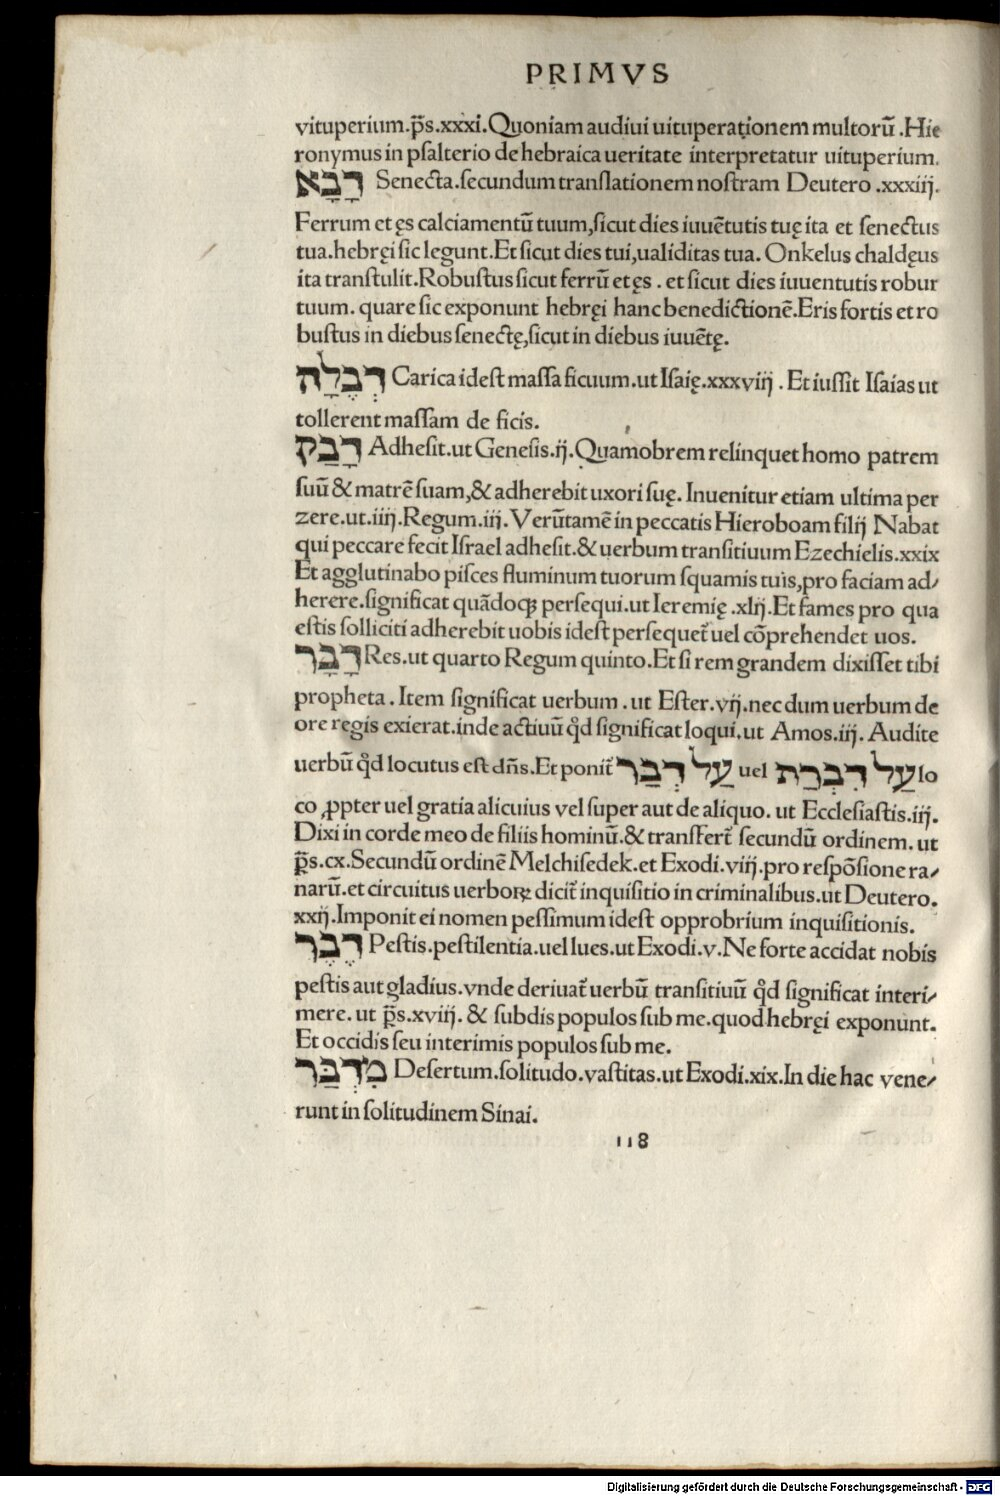 PRIMVS
vituperium.p̃s.xxxi.Quoniam audiui uituperationem multorũ.Hie
ronymus in psalterio de hebraica ueritate interpretatur uituperium.
דָבָא Senecta.secundum translationem nostram Deutero.xxxiij.
Ferrum et ęs calciamentũ tuum,sicut dies iuuẽtutis tuę ita et senectus
tua.hebręi sic legunt.Et sicut dies tui,ualiditas tua. Onkelus chaldęus
ita transtulit.Robustus sicut ferrũ et ęs. et sicut dies iuuentutis robur
tuum. quare sic exponunt hebręi hanc benedictionẽ.Eris fortis et ro
bustus in diebus senectę,sicut in diebus iuuẽtę.
דְבֶלָה Carica idest massa ficuum.ut Isaię.xxxviij. Et iussit Isaias ut
tollerent massam de ficis.
דָבַק Adhesit.ut Genesis.ij.Quamobrem relinquet homo patrem
suũ & matrẽ suam,& adherebit uxori suę. Inuenitur etiam ultima per
zere.ut.iiij.Regum.iij. Verũtamẽ in peccatis Hieroboam filij Nabat
qui peccare fecit Israel adhesit.& uerbum transitiuum Ezechielis.xxix
Et agglutinabo pisces fluminum tuorum squamis tuis,pro faciam ad/
herere.significat quãdoqꝫ persequi.ut Ieremię.xlij.Et fames pro qua
estis solliciti adherebit uobis idest persequet᷑ uel cõprehendet uos.
דָבָר Res.ut quarto Regum quinto.Et si rem grandem dixisset tibi
propheta. Item significat uerbum. ut Ester.vij.nec dum uerbum de
ore regis exierat.inde actiuũ qđ significat loqui.ut Amos.iij. Audite
uerbũ qđ locutus est dñs.Et ponit᷑ עַל דְבַר uel עַל דִבְרַת lo
co ꝓpter uel gratia alicuius vel super aut de aliquo. ut Ecclesiastis.iij.
Dixi in corde meo de filiis hominũ.& transfert᷑ secundũ ordinem. ut
p̃s.cx.Secundũ ordinẽ Melchisedek.et Exodi.viij.pro respõsione ra/
narũ.et circuitus uerboꝝ dicit᷑ inquisitio in criminalibus.ut Deutero.
xxij.Imponit ei nomen pessimum idest opprobrium inquisitionis.
דֶבֶר Pestis.pestilentia.uel lues.ut Exodi.v.Ne forte accidat nobis
pestis aut gladius.vnde deriuat᷑ uerbũ transitiuũ qđ significat interi/
mere. ut p̃s.xviij. & subdis populos sub me.quod hebręi exponunt.
Et occidis seu interimis populos sub me.
מִדְבַּר Desertum.solitudo.vastitas.ut Exodi.xix.In die hac vene/
runt in solitudinem Sinai.
118
Digitalisierung gefördert durch die Deutsche Forschungsgemeinschaft - DFG